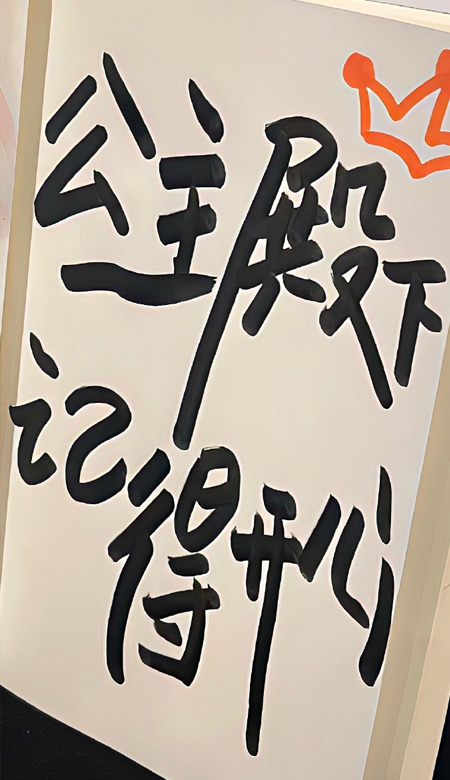 公主殿下
记得开心